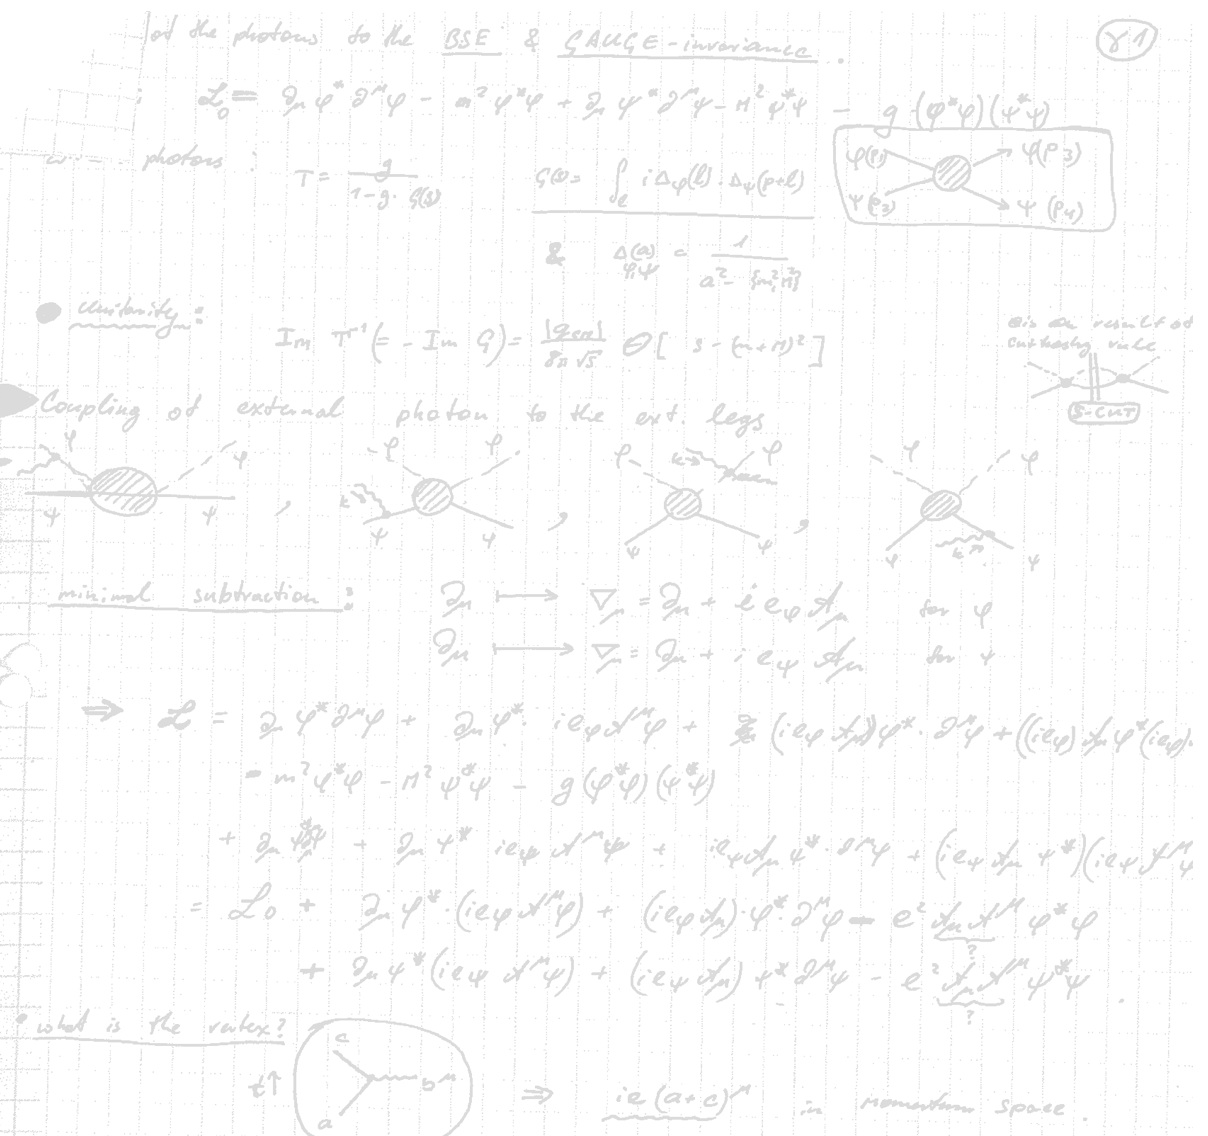 of the photons to the BSE & GAUGE-invariance. γ1
ℒ₀ = ∂μ φ* ∂^μ φ - m² φ*φ + ∂μ ψ* ∂^μ ψ - M² ψ*ψ - g (φ*φ)(ψ*ψ)
photons :
T = g / (1 - g · G(s))
G(s) = ∫_l i Δφ(l) · Δψ(p+l)
φ(p1) φ(p3)
ψ(p3) ψ(p4)
& Δ(a) φ,ψ = 1 / (a² - {m², M²})
unitarity:
Im T⁻¹ (= - Im G) = |q_cm| / (8π √s) Θ[ s - (m+M)² ]
result of
rule
S-CUT
Coupling of external photon to the ext. legs
φ φ φ φ φ φ φ φ
k k k
ψ ψ , ψ ψ , ψ ψ , φ ψ
minimal subtraction : ∂μ ⟼ ∇μ = ∂μ + i eφ Aμ for φ
∂μ ⟼ ∇μ = ∂μ + i eψ Aμ for ψ
⇒ ℒ = ∂μ φ* ∂^μ φ + ∂μ φ* · i eφ A^μ φ + (i eφ Aμ) φ* · ∂^μ φ + ((i eφ) Aμ φ* (i eφ)
- m² φ*φ - M² ψ*ψ - g (φ*φ)(ψ*ψ)
+ ∂μ + ∂μ ψ* i eψ A^μ ψ + i eψ Aμ ψ* · ∂^μ ψ + (i eψ Aμ ψ*)(i eψ A^μ ψ
= ℒ₀ + ∂μ φ* · (i eφ A^μ φ) + (i eφ Aμ) · φ* · ∂^μ φ - e² Aμ A^μ φ*φ
?
+ ∂μ ψ* (i eψ A^μ ψ) + (i eψ Aμ) ψ* ∂^μ ψ - e² Aμ A^μ ψ*ψ .
?
what is the vertex?
t↑ c b μ a ⇒ ie (a+c)^μ in momentum space .